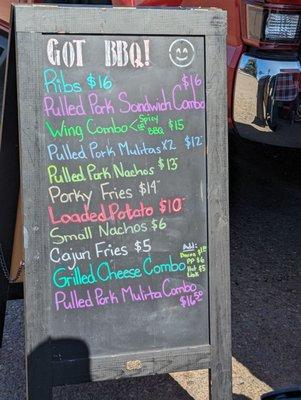 GOT BBQ!
Ribs $16
Pulled Pork Sandwich Combo $16
Wing Combo < Spicy BBQ $15
Pulled Pork Mulitas x2 $12
Pulled Pork Nachos $13
Porky Fries $14
Loaded Potato $10
Small Nachos $6
Cajun Fries $5
Grilled Cheese Combo
Add:
PP $6
Hot Link $5
Pulled Pork Mulita Combo